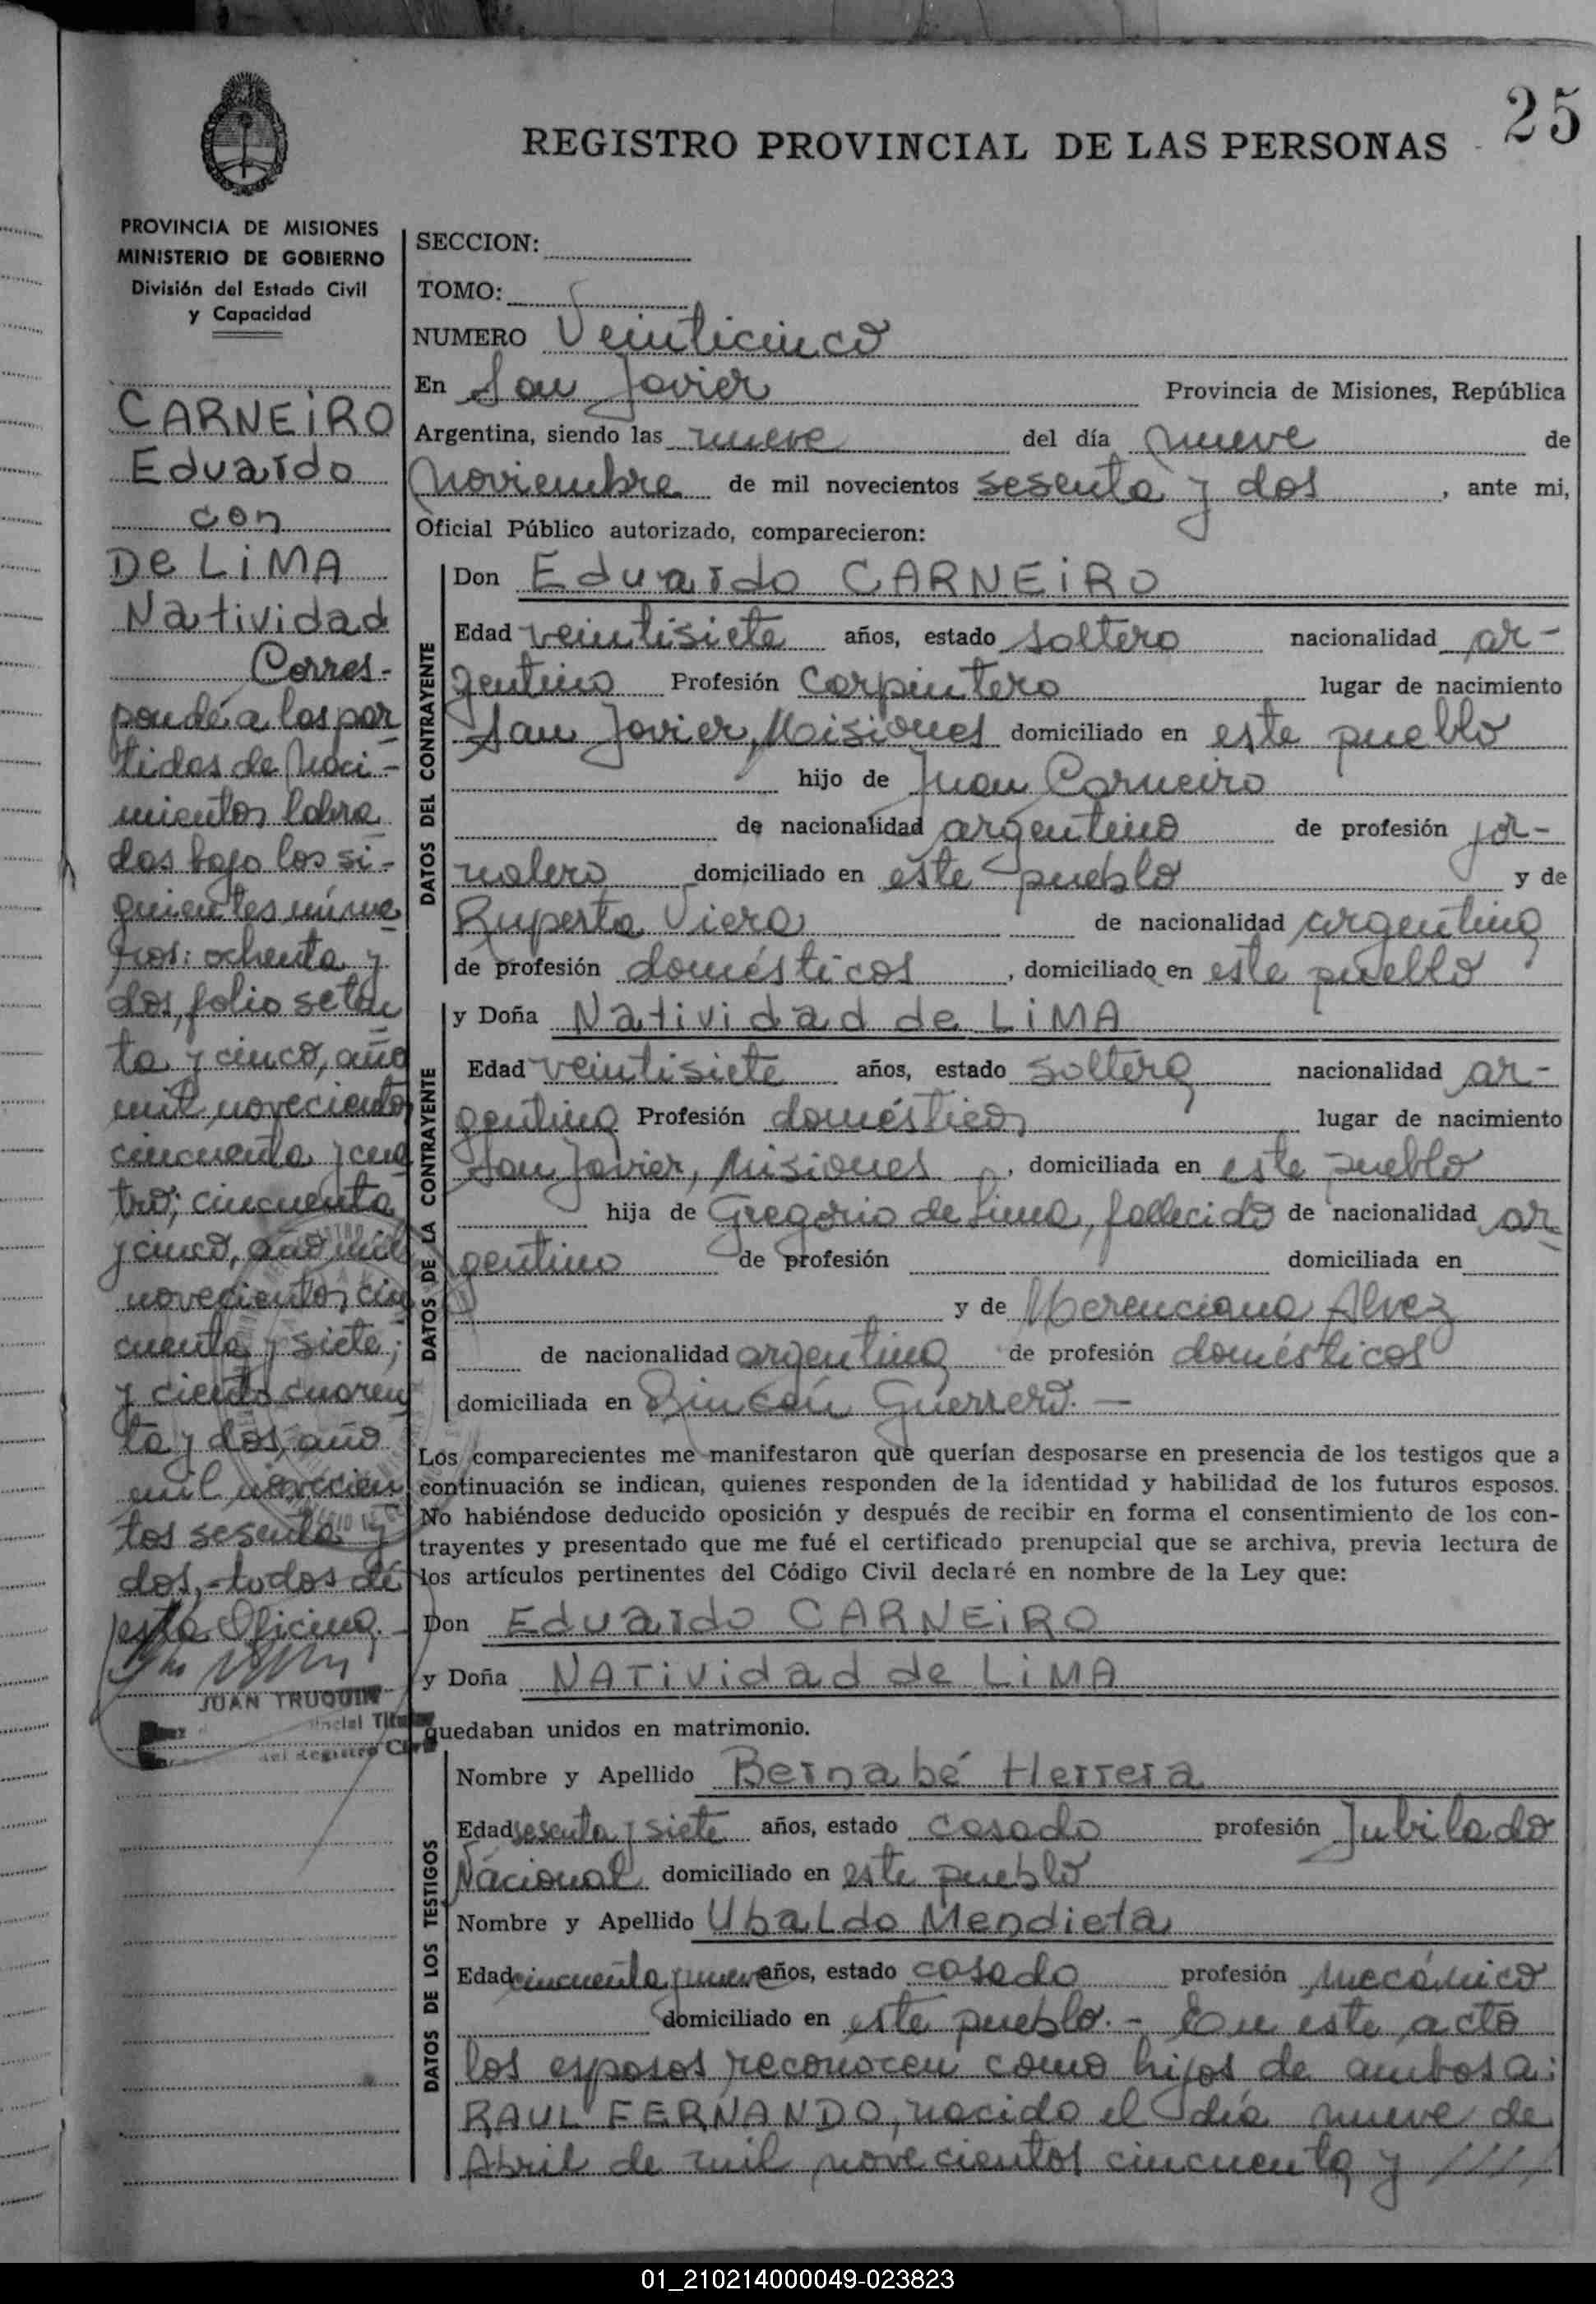 25
REGISTRO PROVINCIAL DE LAS PERSONAS
PROVINCIA DE MISIONES
MINISTERIO DE GOBIERNO
División del Estado Civil
y Capacidad
CARNEIRO
Eduardo
con
De LiMA
Natividad
Corres-
ponde a las par
tidas de Naci-
mientos labra
das bajo los si-
guientes núme
ros: ochenta y
dos, folio seten
ta y cinco, año
mil novecientos
cincuenta y cua
tro; cincuenta
y cinco, año mil
novecientos cin
cuenta y siete;
y ciento cuaren
ta y dos, año
mil novecien
tos sesenta y
dos,-todos de
esta Oficina.-
JUAN TRUQUIN
Titular
del Registro Civil
SECCION:
TOMO:
NUMERO Veinticinco
En San Javier Provincia de Misiones, República
Argentina, siendo las nueve del día nueve de
Noviembre de mil novecientos sesenta y dos, ante mi,
Oficial Público autorizado, comparecieron:
DATOS DEL CONTRAYENTE
Don Eduardo CARNEiRO
Edad veintisiete años, estado soltero nacionalidad ar-
gentino Profesión Carpintero lugar de nacimiento
San Javier, Misiones domiciliado en este pueblo
hijo de Juan Carneiro
de nacionalidad argentino de profesión jor-
nalero domiciliado en este pueblo y de
Ruperta Viera de nacionalidad argentina
de profesión domésticos, domiciliado en este pueblo
DATOS DE LA CONTRAYENTE
y Doña Natividad de LiMA
Edad veintisiete años, estado soltera nacionalidad ar-
gentina Profesión domésticos lugar de nacimiento
San Javier, Misiones, domiciliada en este pueblo
hija de Gregorio de Lima, fallecido de nacionalidad ar
gentino de profesión domiciliada en
y de Merenciana Alvez
de nacionalidad argentina de profesión domésticos
domiciliada en Rincón Guerrero.-
Los comparecientes me manifestaron que querían desposarse en presencia de los testigos que a
continuación se indican, quienes responden de la identidad y habilidad de los futuros esposos.
No habiéndose deducido oposición y después de recibir en forma el consentimiento de los con-
trayentes y presentado que me fué el certificado prenupcial que se archiva, previa lectura de
los artículos pertinentes del Código Civil declaré en nombre de la Ley que:
Don Eduardo CARNEiRO
y Doña NATividad de LiMA
quedaban unidos en matrimonio.
DATOS DE LOS TESTIGOS
Nombre y Apellido Bernabé Herrera
Edad sesenta y siete años, estado casado profesión Jubilado
Nacional domiciliado en este pueblo
Nombre y Apellido UbaLdo Mendieta
Edad cincuenta y nueve años, estado casado profesión mecánico
domiciliado en este pueblo.- En este acto
los esposos reconocen como hijos de ambos a:
RAUL FERNANDO, nacido el día nueve de
Abril de mil novecientos cincuenta y ////
01_210214000049-023823